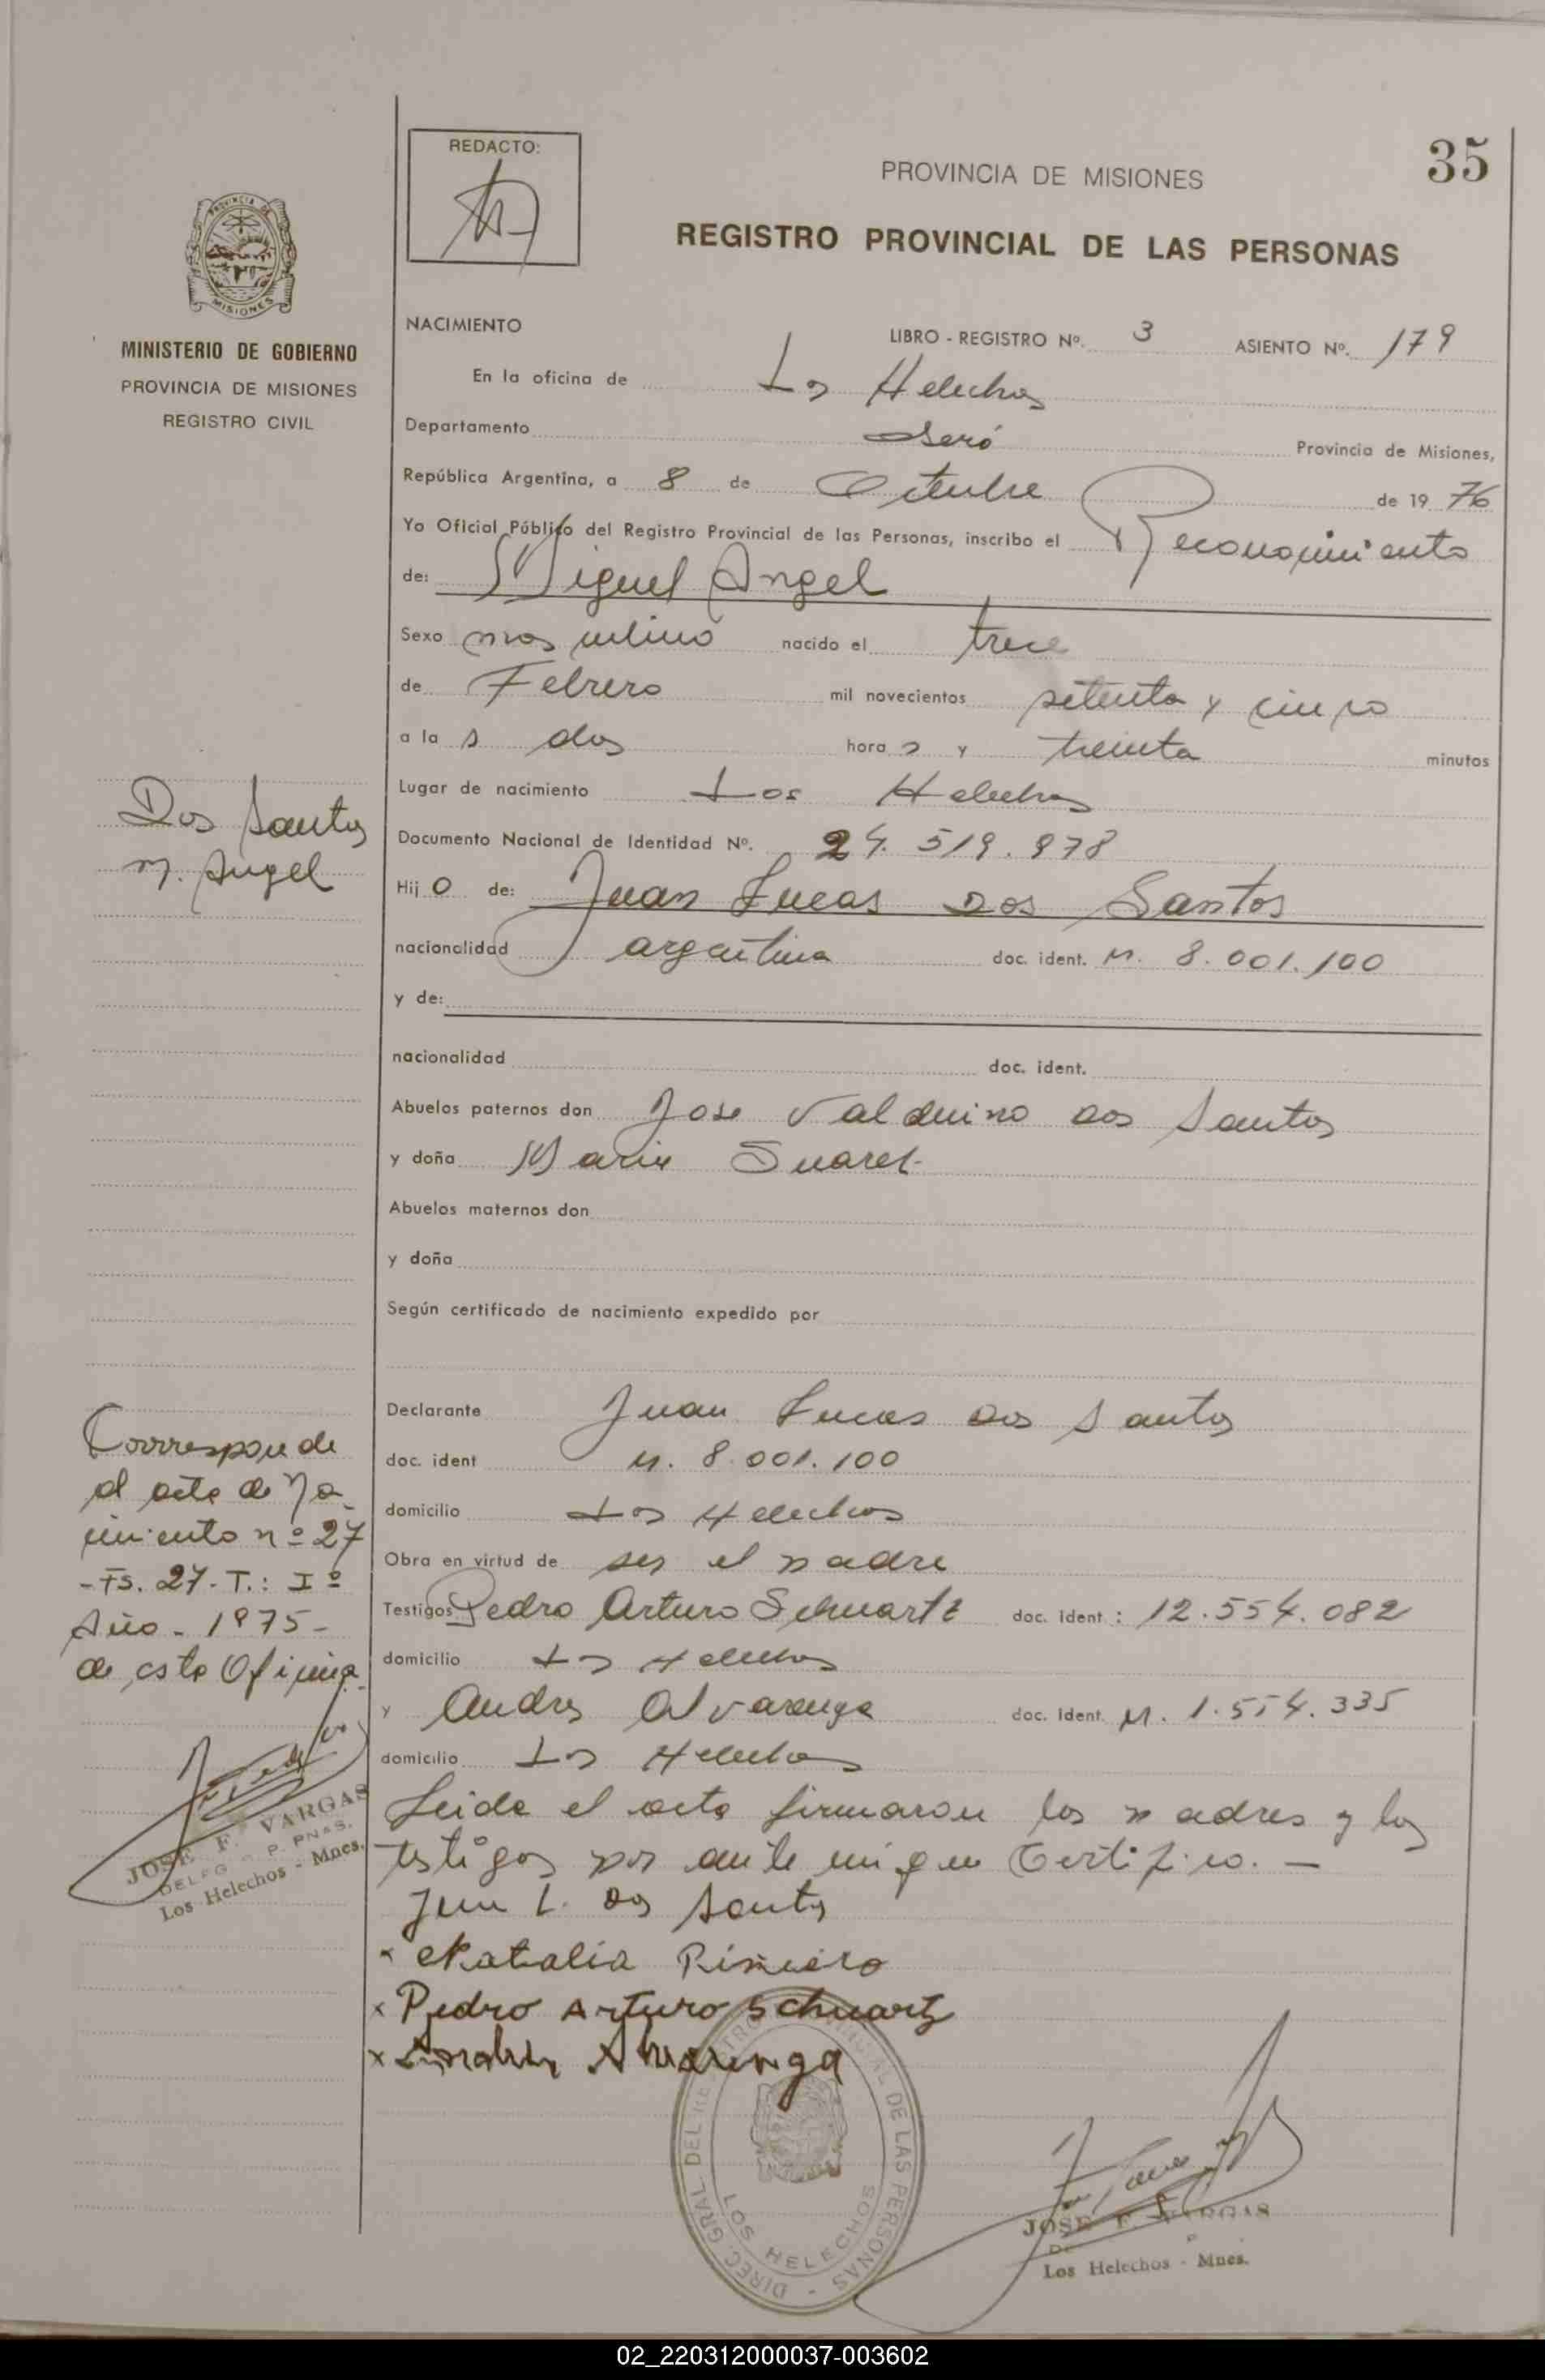 35
REDACTO:
PROVINCIA DE MISIONES
REGISTRO PROVINCIAL DE LAS PERSONAS
PROVINCIA DE
MISIONES
MINISTERIO DE GOBIERNO
PROVINCIA DE MISIONES
REGISTRO CIVIL
NACIMIENTO
LIBRO - REGISTRO Nº. 3 ASIENTO Nº. 179
En la oficina de Los Helechos
Departamento Oberá Provincia de Misiones,
República Argentina, a 8 de Octubre de 1976
Yo Oficial Público del Registro Provincial de las Personas, inscribo el Reconocimiento
de: Miguel Angel
Sexo masculino nacido el trece
de Febrero mil novecientos setenta y cinco
a las dos horas y treinta minutos
Lugar de nacimiento Los Helechos
Documento Nacional de Identidad Nº. 24.519.978
Hijo de: Juan Lucas Dos Santos
nacionalidad argentina doc. ident. M. 8.001.100
y de:
nacionalidad doc. ident.
Abuelos paternos don Jose Valduino dos Santos
y doña Maria Suarez
Abuelos maternos don
y doña
Según certificado de nacimiento expedido por
Declarante Juan Lucas dos Santos
doc. ident M. 8.001.100
domicilio Los Helechos
Obra en virtud de ser el padre
Testigos Pedro Arturo Schuartz doc. ident : 12.554.082
domicilio Los Helechos
y Andres Alvarenga doc. Ident. M. 1.554.335
domicilio Los Helechos
Leida el acta firmaron los padres y los
testigos por ante mi que Certifico. —
Juan L. dos Santos
x Natalia
x Pedro Arturo Schuartz
x Alvarenga
Dos Santos
M. Angel
Corresponde
al acta de Na
cimiento nº 27
- Fs. 27. T.: Iº
Año - 1975 -
de esta Oficina.
JOSE F. VARGAS
DELEG. R. P. PNAS.
Los Helechos - Mnes.
DIREC. GRAL. DEL REGISTRO PROVINCIAL DE LAS PERSONAS
LOS HELECHOS
JOSE F. VARGAS
Los Helechos - Mnes.
02_220312000037-003602